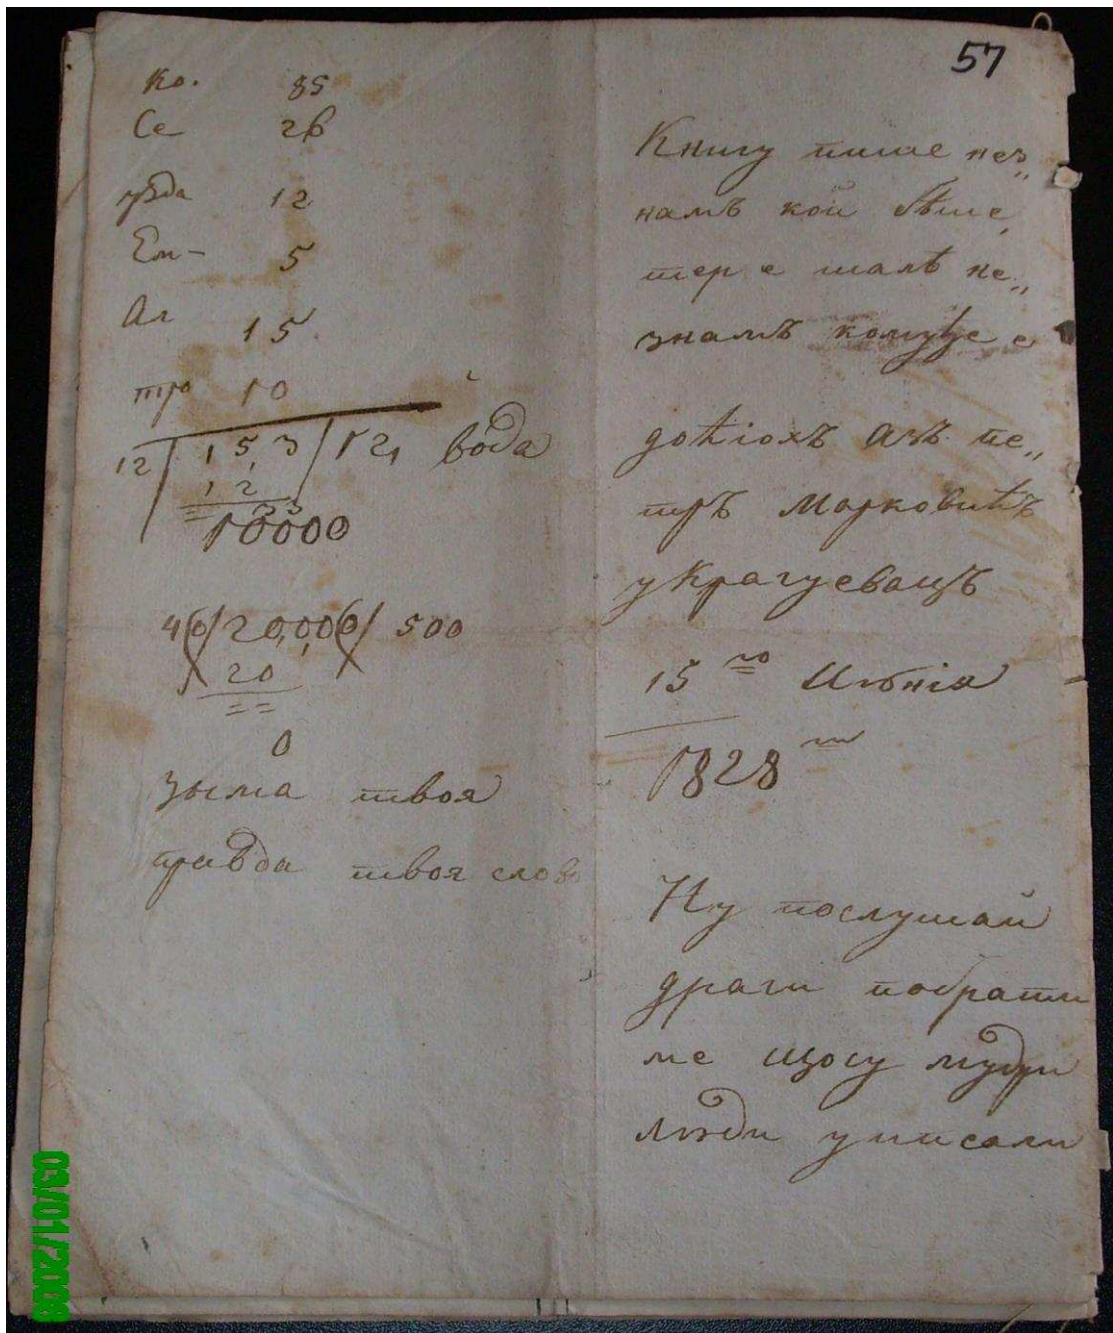 57
Ко. 85
Се 26
12
Ем- 5
Ал
15
тро 10
12 / 15,3 / 12, вода
12
33
10000
40/20,000/ 500
20
0
зыма твоя
правда твоя слово
Книгу пише нез„
намъ кой бѣше,
тер е шалѣ не„
знамъ комуе є
доћіохъ Азъ Пе„
тръ Марковићъ
у Крагуевацъ
15 го Июніа
1828 га
Ну послушай
драги побрати
ме щосу мудри
люди уписали
03/01/2008